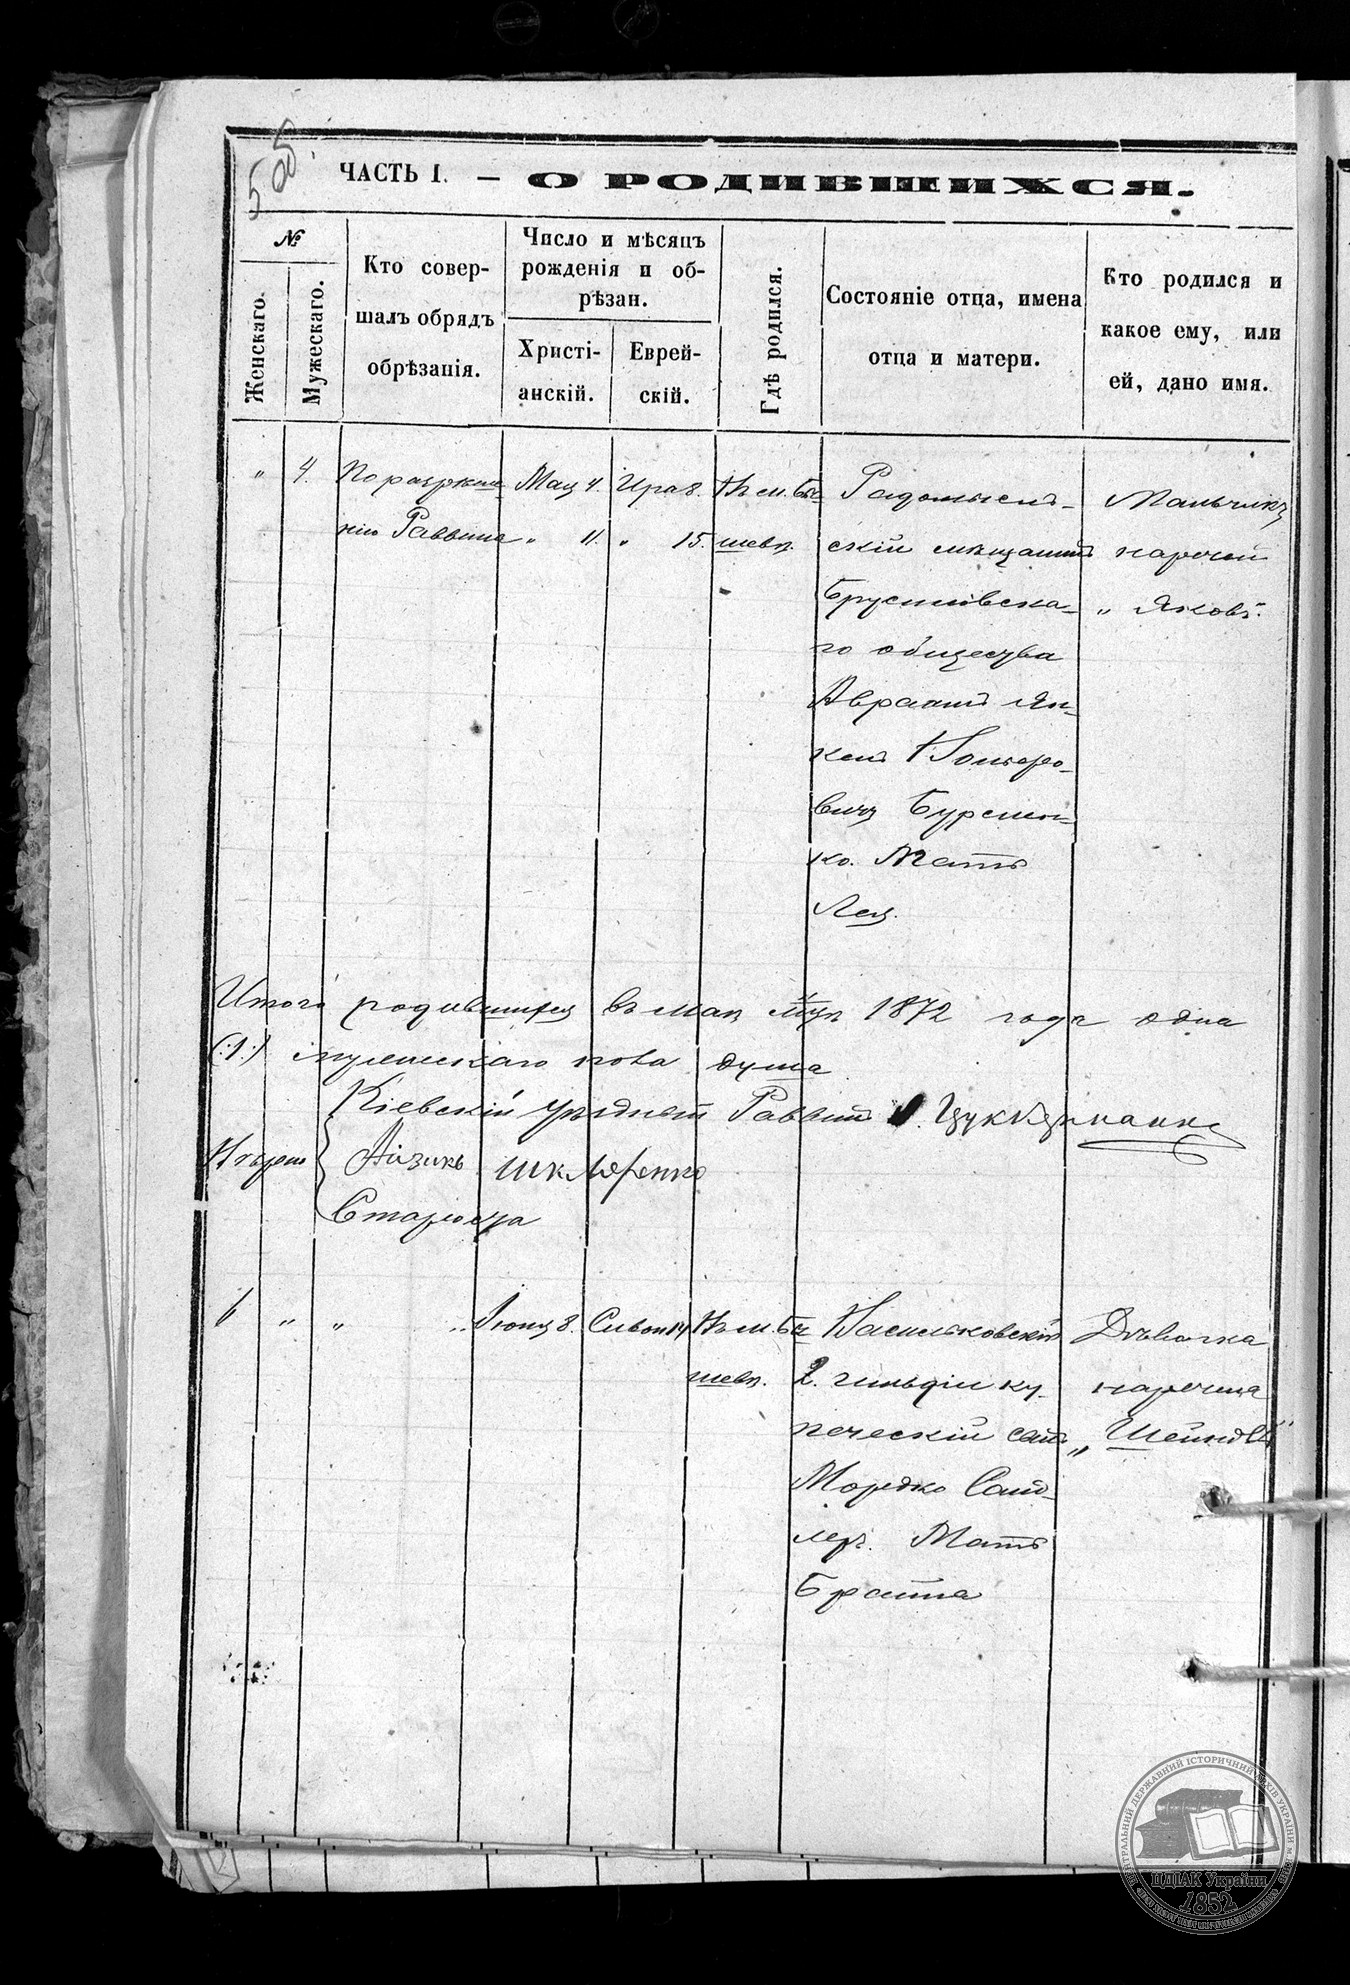 505.
ЧАСТЬ I. — О РОДИВШИХСЯ.
№
Женскаго.
Мужескаго.
Кто совер-
шалъ обрядъ
обрѣзанія.
Число и мѣсяцъ
рожденія и об-
рѣзан.
Христі-
анскій.
Еврей-
скій.
Гдѣ родился.
Состояніе отца, имена
отца и матери.
Кто родился и
какое ему, или
ей, дано имя.
" 4.
По разрѣше-
нію Раввина
Мая 4.
" 11.
Ира 8.
" 15.
Въ м. Бы-
шевѣ.
Радомысль-
скій мѣщанинъ
Брусиловска-
го общества
Авраамъ Ян-
кель
вичъ
ко. Мать
Лея.
Мальчикъ
нареченъ
„ Яковъ".
Итого родившихся въ маѣ м-цѣ 1872 года одна
(:1:) мужескаго пола душа
Кіевскій уѣздный Раввинъ Цуккерманъ
Айзикъ Шкляренко
Староста
6 " "
" Іюня 8.
Сивон 14
Въ м. Бы-
шевѣ.
Васильковскій
2. гильдіи ку-
печескій сынъ
Мордко Сан-
леръ. Мать
Брайна
Дѣвочка
наречена
„ Шейндля"
ЦЕНТРАЛЬНИЙ ДЕРЖАВНИЙ ІСТОРИЧНИЙ АРХІВ УКРАЇНИ М. КИЇВ
ЦДІАК України
1852